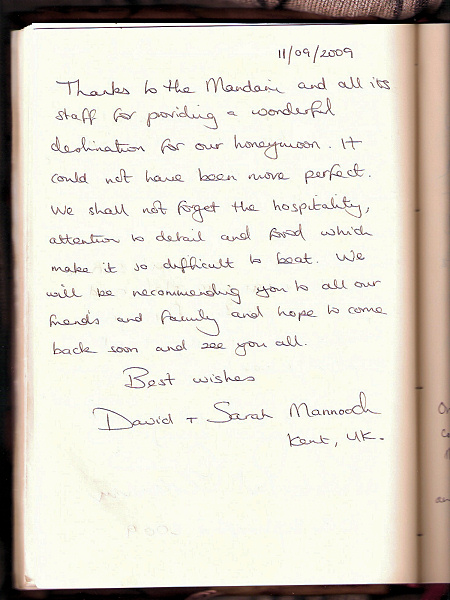 11/09/2009
Thanks to the Mandarin and all its
staff for providing a wonderful
destination for our honeymoon. It
could not have been more perfect.
We shall not forget the hospitality,
attention to detail and food which
make it so difficult to beat. We
will be recommending you to all our
friends and family and hope to come
back soon and see you all.
Best wishes
David + Sarah Mannooch
Kent, UK.